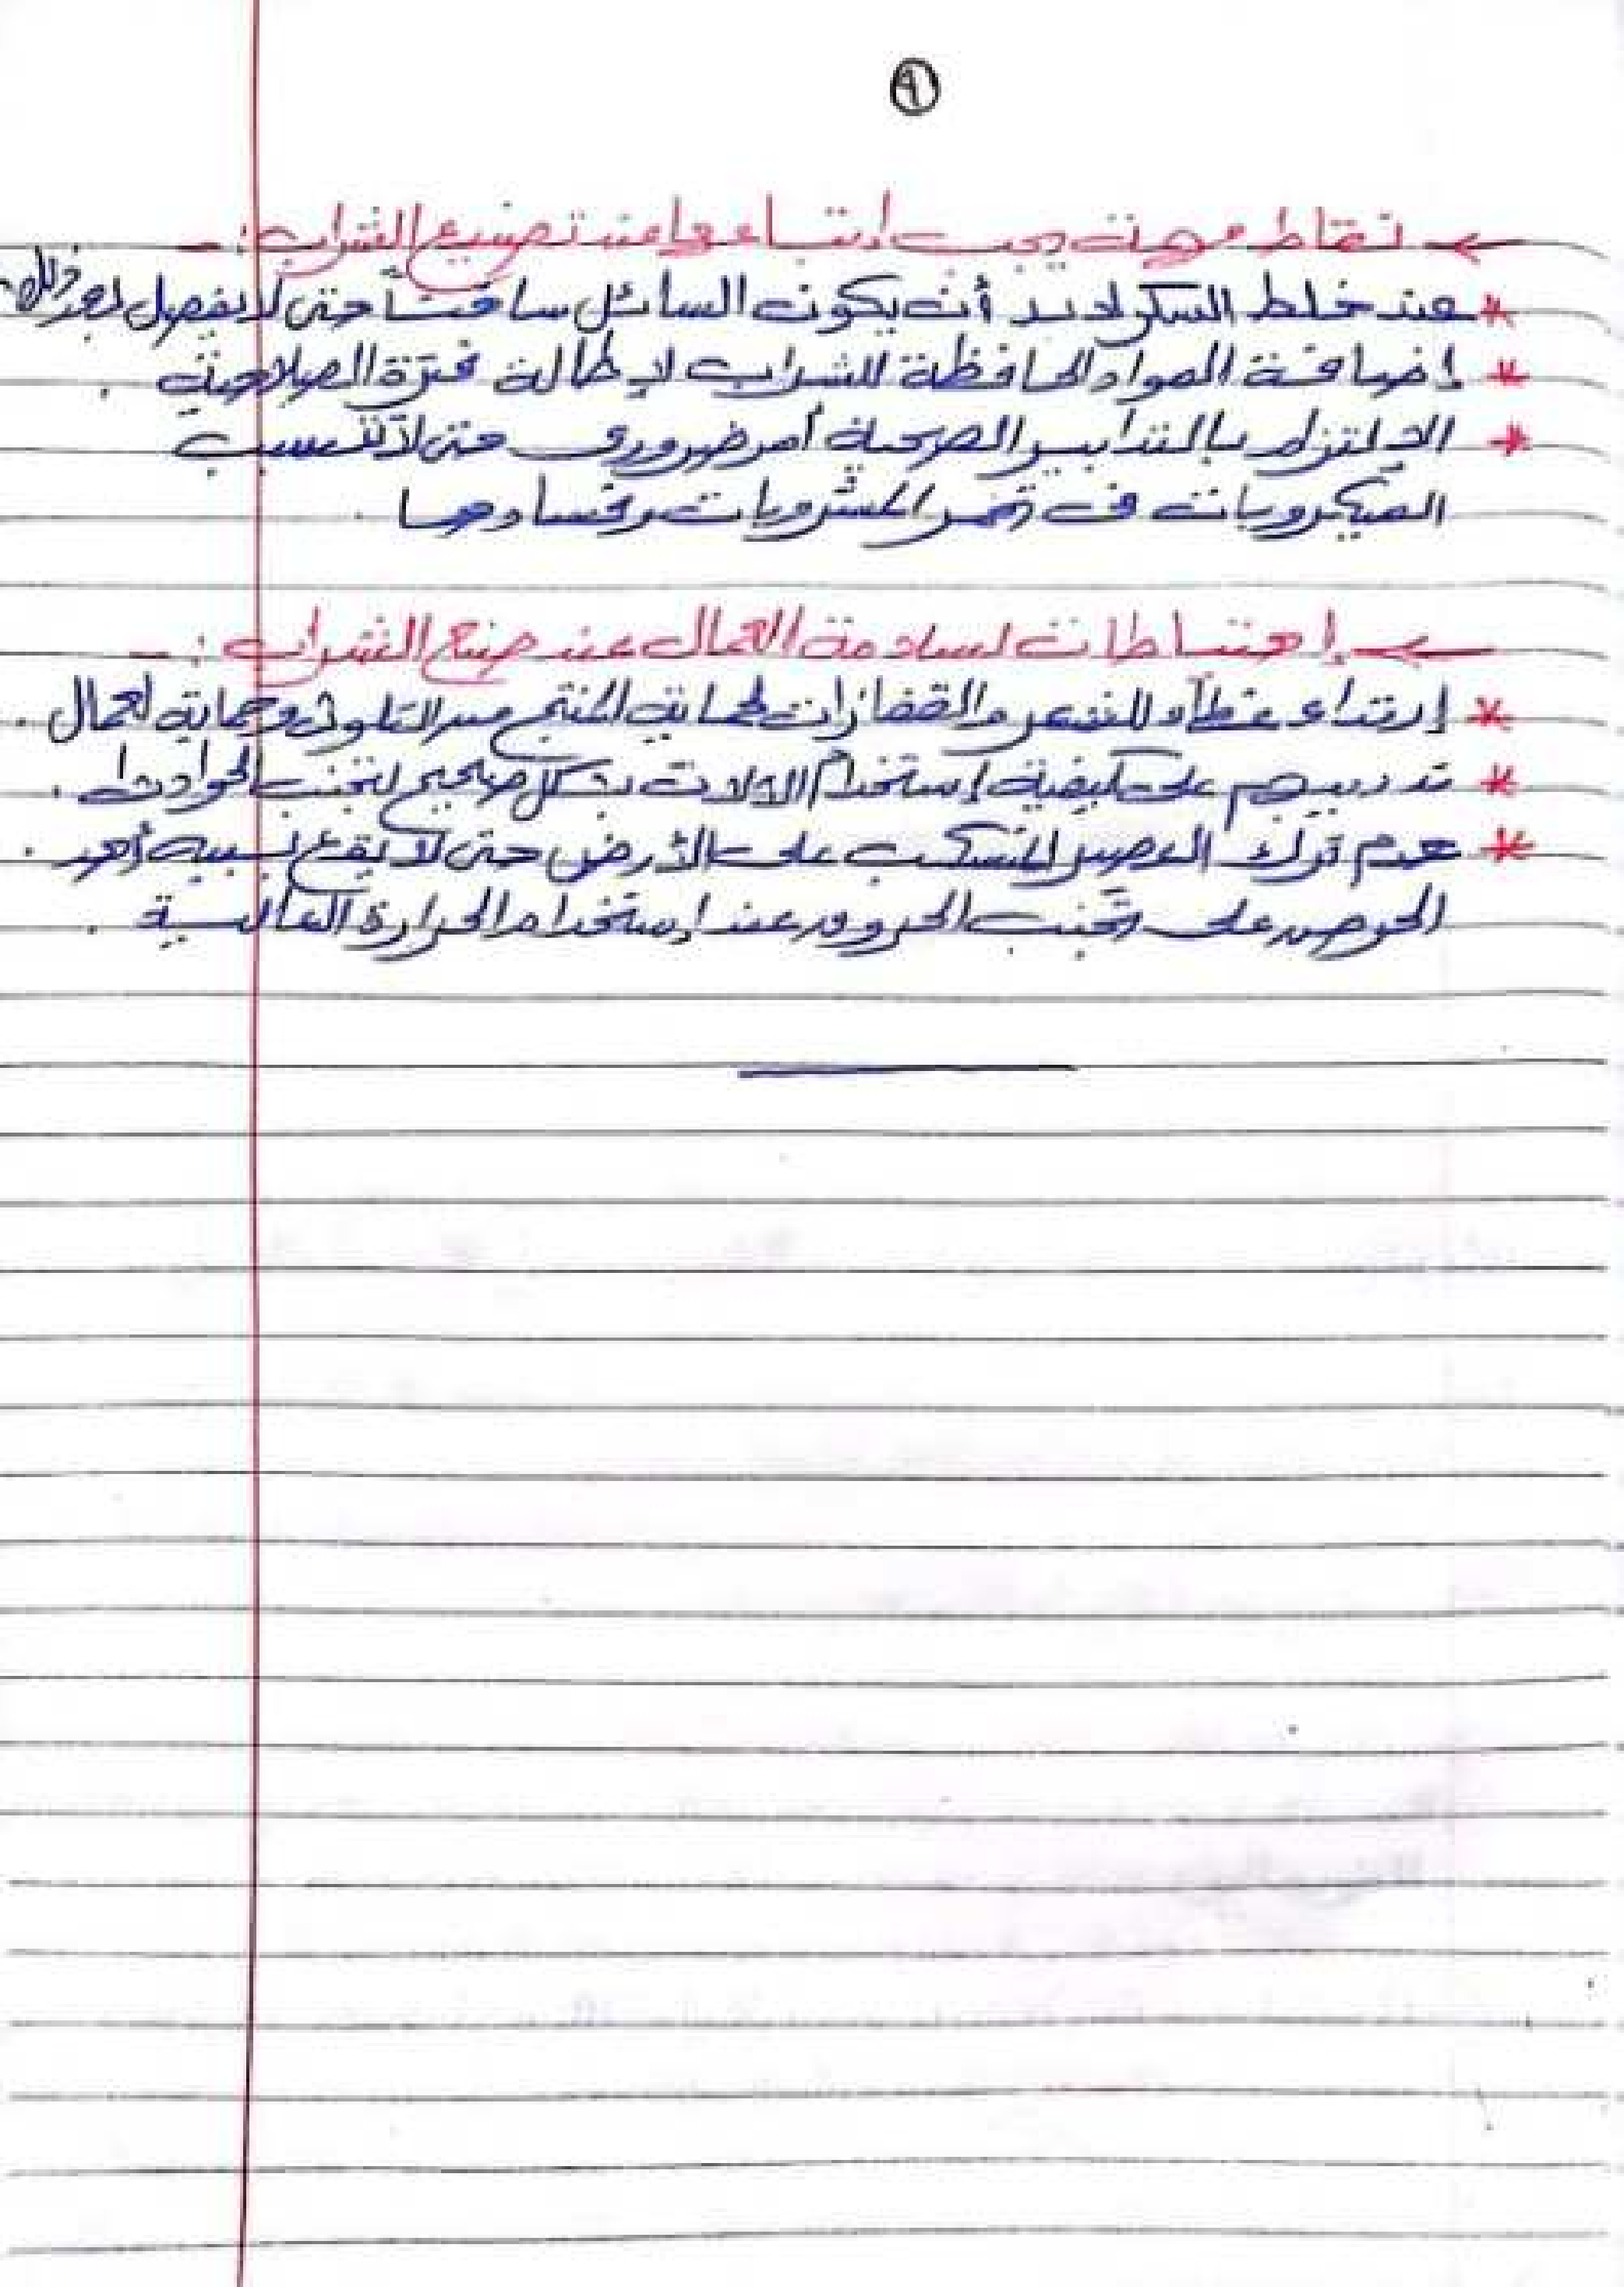 ٩
← نقاط مهمة يجب إتباعها عند تصنيع الشراب :-
* عند خلط السكر لابد أن يكون السائل ساخناً حتى لا يفصل بعد ذلك.
* إضافة المواد الحافظة للشراب لإطالة فترة الصلاحية .
* الالتزام بالتدابير الصحية أمر ضروري حتى لا تتسبب
الميكروبات في تخمر المشروبات وفسادها .
← إحتياطات لسلامة العمال عند صنع الشراب :-
* إرتداء غطاء للشعر والقفازات لحماية المنتج من التلوث وحماية العمال .
* تدريبهم على كيفية إستخدام الآلات بشكل صحيح لتجنب الحوادث .
* عدم ترك العصير المنسكب على الأرض حتى لا يقع بسببه أحد .
الحرص على تجنب الحروق عند إستخدام الحرارة العالية .